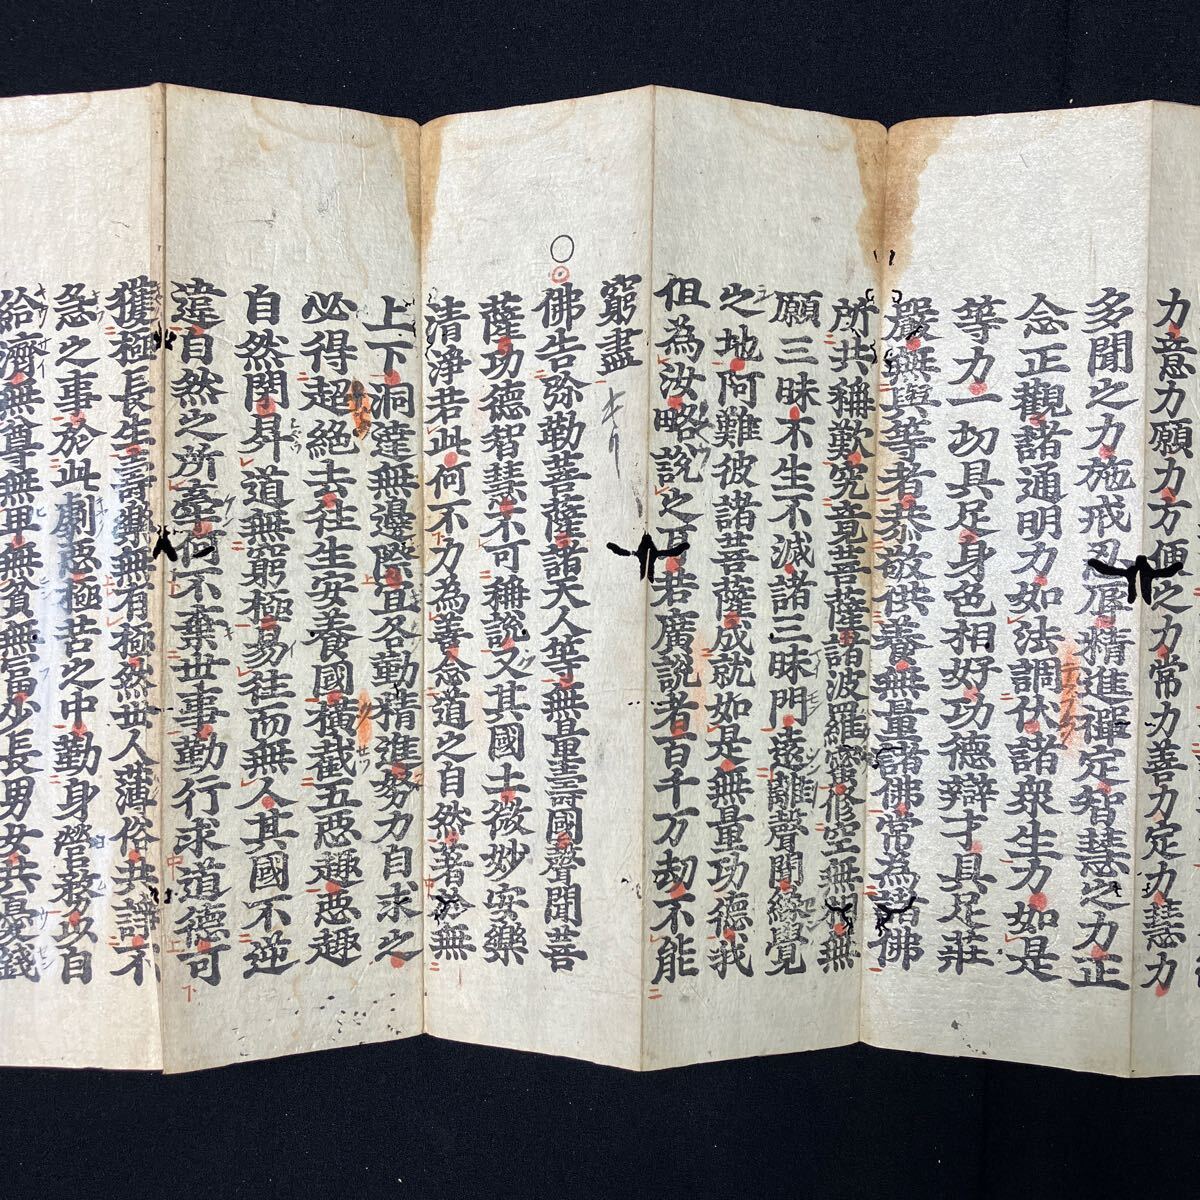 力意力願力方便之力常力善力定力慧力
多聞之力施戒忍辱精進禪定智慧之力正
念正觀諸通明力如法調伏諸衆生力如是
等力一切具足身色相好功德辯才具足莊
嚴無與等者恭敬供養無量諸佛常為諸佛
所共稱歎究竟菩薩諸波羅蜜修空無相無
願三昧不生不滅諸三昧門遠離聲聞緣覺
之地阿難彼諸菩薩成就如是無量功德我
但為汝略說之耳若廣說者百千万劫不能
窮盡
佛告弥勒菩薩諸天人等無量壽國聲聞菩
薩功德智慧不可稱說又其國土微妙安樂
清淨若此何不力為善念道之自然著於無
上下洞達無邊際宜各勤精進努力自求之
必得超絕去往生安養國橫截五惡趣惡趣
自然閉昇道無窮極易往而無人其國不逆
違自然之所牽何不棄世事勤行求道德可
獲極長生壽樂無有極然世人薄俗共諍不
急之事於此劇惡極苦之中勤身營務以自
給濟無尊無卑無貧無富少長男女共憂錢